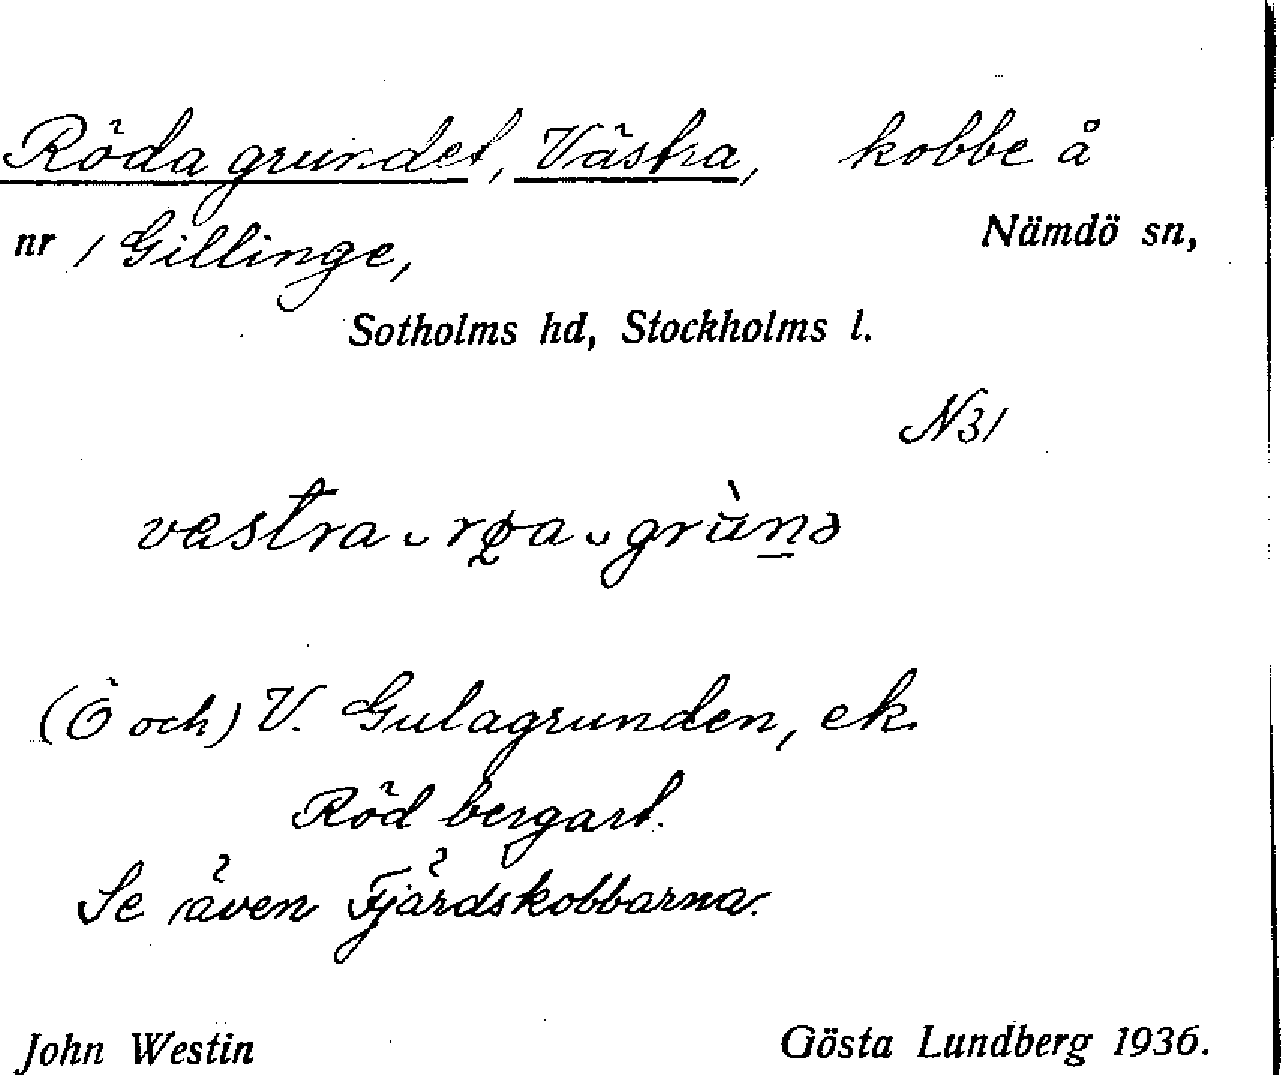 Röda grundet, Västra, kobbe å
nr 1 Gillinge, Nämdö sn,
Sotholms hd, Stockholms l.
N31
vestra ᴗ røa ᴗ grùnə
(Ö och) V. Gulagrunden, ek.
Röd bergart.
Se även Fjärdskobbarna.
John Westin Gösta Lundberg 1936.